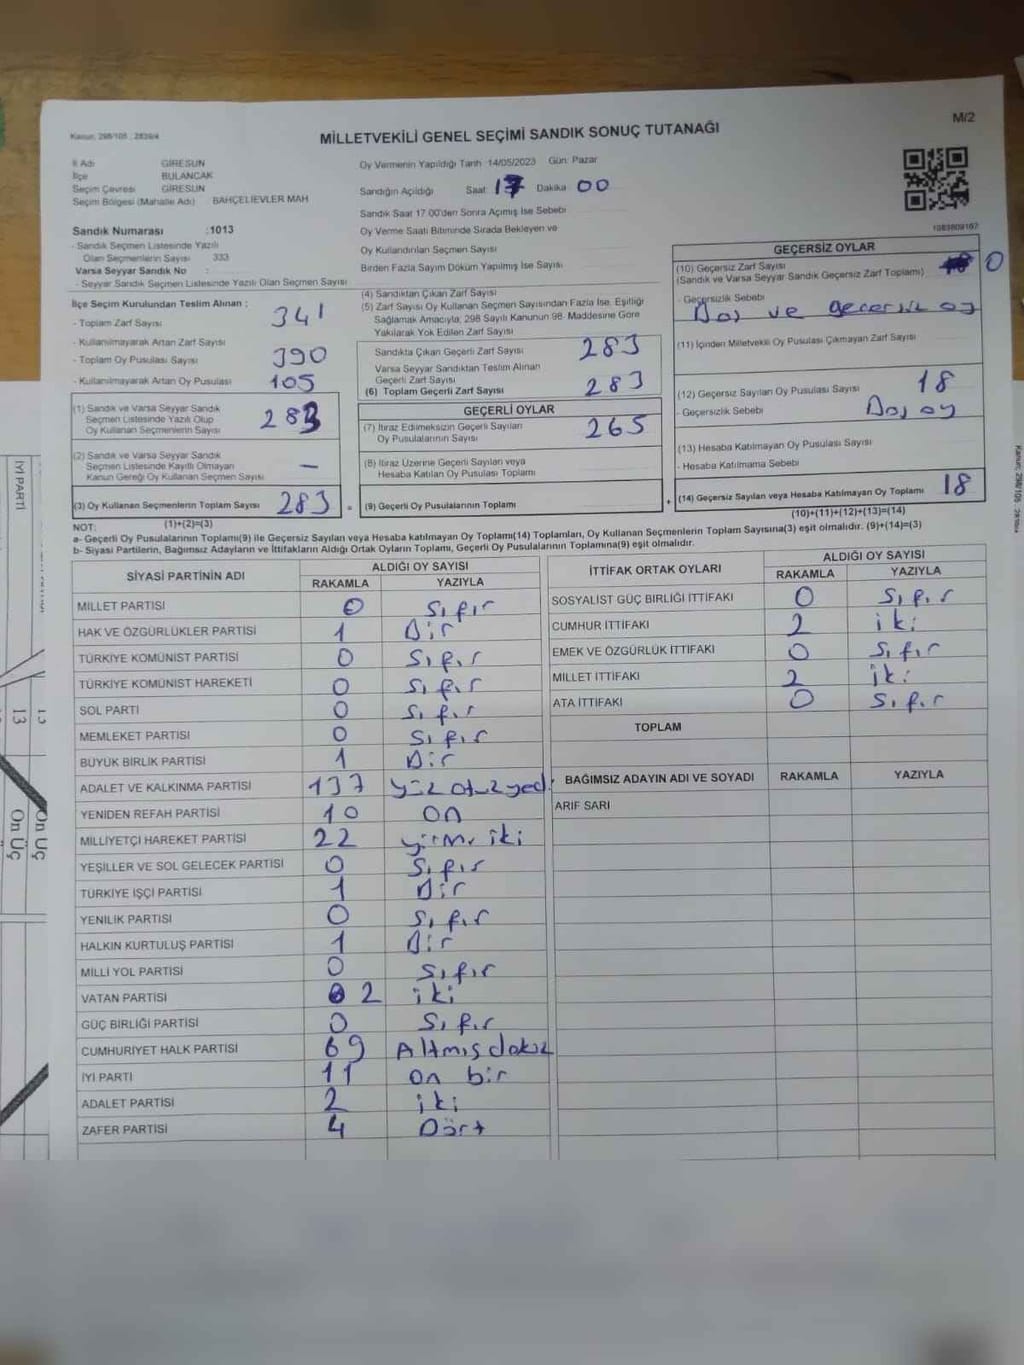 Kanun: 298/105 ; 2839/4
M/2
MİLLETVEKİLİ GENEL SEÇİMİ SANDIK SONUÇ TUTANAĞI
İl Adı GİRESUN
İlçe BULANCAK
Seçim Çevresi GİRESUN
Seçim Bölgesi (Mahalle Adı) BAHÇELİEVLER MAH
Sandık Numarası :1013
- Sandık Seçmen Listesinde Yazılı
Olan Seçmenlerin Sayısı 333
Varsa Seyyar Sandık No :
- Seyyar Sandık Seçmen Listesinde Yazılı Olan Seçmen Sayısı
Oy Vermenin Yapıldığı Tarih 14/05/2023 Gün: Pazar
Sandığın Açıldığı Saat 17 Dakika 00
Sandık Saat 17.00'den Sonra Açımış İse Sebebi
Oy Verme Saati Bitiminde Sırada Bekleyen ve
Oy Kullandırılan Seçmen Sayısı
Birden Fazla Sayım Döküm Yapılmış İse Sayısı
1083809167
İlçe Seçim Kurulundan Teslim Alınan ;
- Toplam Zarf Sayısı 341
- Kullanılmayarak Artan Zarf Sayısı
- Toplam Oy Pusulası Sayısı 390
- Kullanılmayarak Artan Oy Pusulası 105
(1) Sandık ve Varsa Seyyar Sandık
Seçmen Listesinde Yazılı Olup
Oy Kullanan Seçmenlerin Sayısı 283
(2) Sandık ve Varsa Seyyar Sandık
Seçmen Listesinde Kayıtlı Olmayan
Kanun Gereği Oy Kullanan Seçmen Sayısı —
(3) Oy Kullanan Seçmenlerin Toplam Sayısı 283 =
(1)+(2)=(3)
(4) Sandıktan Çıkan Zarf Sayısı
(5) Zarf Sayısı Oy Kullanan Seçmen Sayısından Fazla İse, Eşitliği
Sağlamak Amacıyla, 298 Sayılı Kanunun 98. Maddesine Göre
Yakılarak Yok Edilen Zarf Sayısı
Sandıkta Çıkan Geçerli Zarf Sayısı 283
Varsa Seyyar Sandıktan Teslim Alınan
Geçerli Zarf Sayısı
(6) Toplam Geçerli Zarf Sayısı 283
GEÇERLİ OYLAR
(7) İtiraz Edilmeksizin Geçerli Sayılan
Oy Pusulalarının Sayısı 265
(8) İtiraz Üzerine Geçerli Sayılan veya
Hesaba Katılan Oy Pusulası Toplamı
(9) Geçerli Oy Pusulalarının Toplamı +
GEÇERSİZ OYLAR
(10) Geçersiz Zarf Sayısı
(Sandık ve Varsa Seyyar Sandık Geçersiz Zarf Toplamı) 0
- Geçersizlik Sebebi
Boş ve geçersiz oy
(11) İçinden Milletvekili Oy Pusulası Çıkmayan Zarf Sayısı
(12) Geçersiz Sayılan Oy Pusulası Sayısı 18
- Geçersizlik Sebebi Boş oy
(13) Hesaba Katılmayan Oy Pusulası Sayısı
- Hesaba Katılmama Sebebi
(14) Geçersiz Sayılan veya Hesaba Katılmayan Oy Toplamı 18
(10)+(11)+(12)+(13)=(14)
NOT:
a- Geçerli Oy Pusulalarının Toplamı(9) ile Geçersiz Sayılan veya Hesaba katılmayan Oy Toplamı(14) Toplamları, Oy Kullanan Seçmenlerin Toplam Sayısına(3) eşit olmalıdır. (9)+(14)=(3)
b- Siyasi Partilerin, Bağımsız Adayların ve İttifakların Aldığı Ortak Oyların Toplamı, Geçerli Oy Pusulalarının Toplamına(9) eşit olmalıdır.
SİYASİ PARTİNİN ADI ALDIĞI OY SAYISI
RAKAMLA YAZIYLA
MİLLET PARTİSİ 0 Sıfır
HAK VE ÖZGÜRLÜKLER PARTİSİ 1 Bir
TÜRKİYE KOMÜNİST PARTİSİ 0 Sıfır
TÜRKİYE KOMÜNİST HAREKETİ 0 Sıfır
SOL PARTİ 0 Sıfır
MEMLEKET PARTİSİ 0 Sıfır
BÜYÜK BİRLİK PARTİSİ 1 Bir
ADALET VE KALKINMA PARTİSİ 137 yüz otuz yedi
YENİDEN REFAH PARTİSİ 10 on
MİLLİYETÇİ HAREKET PARTİSİ 22 yirmi iki
YEŞİLLER VE SOL GELECEK PARTİSİ 0 Sıfır
TÜRKİYE İŞÇİ PARTİSİ 1 Bir
YENİLİK PARTİSİ 0 Sıfır
HALKIN KURTULUŞ PARTİSİ 1 Bir
MİLLİ YOL PARTİSİ 0 Sıfır
VATAN PARTİSİ 2 iki
GÜÇ BİRLİĞİ PARTİSİ 0 Sıfır
CUMHURİYET HALK PARTİSİ 69 Altmış dokuz
İYİ PARTİ 11 on bir
ADALET PARTİSİ 2 iki
ZAFER PARTİSİ 4 Dört
İTTİFAK ORTAK OYLARI ALDIĞI OY SAYISI
RAKAMLA YAZIYLA
SOSYALİST GÜÇ BİRLİĞİ İTTİFAKI 0 Sıfır
CUMHUR İTTİFAKI 2 iki
EMEK VE ÖZGÜRLÜK İTTİFAKI 0 Sıfır
MİLLET İTTİFAKI 2 iki
ATA İTTİFAKI 0 Sıfır
TOPLAM
BAĞIMSIZ ADAYIN ADI VE SOYADI RAKAMLA YAZIYLA
ARIF SARI
İYİ PARTİ
13
13
On Üç
On Üç